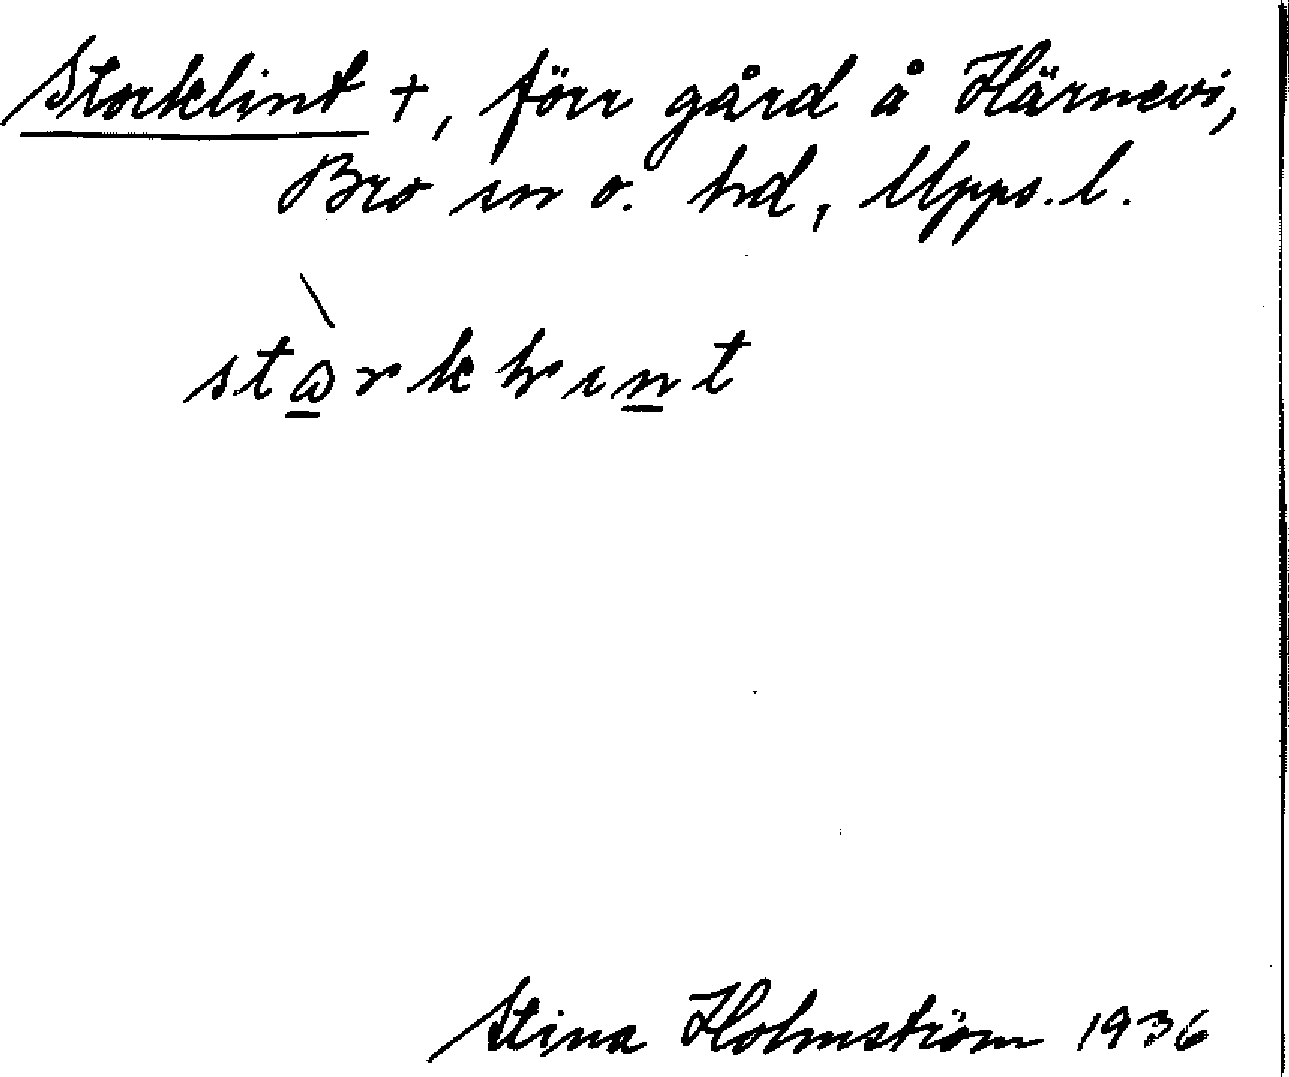 Storklint +, förr gård å Härnevi,
Bro sn o. hd, Upps. l.
Stina Holmström 1936